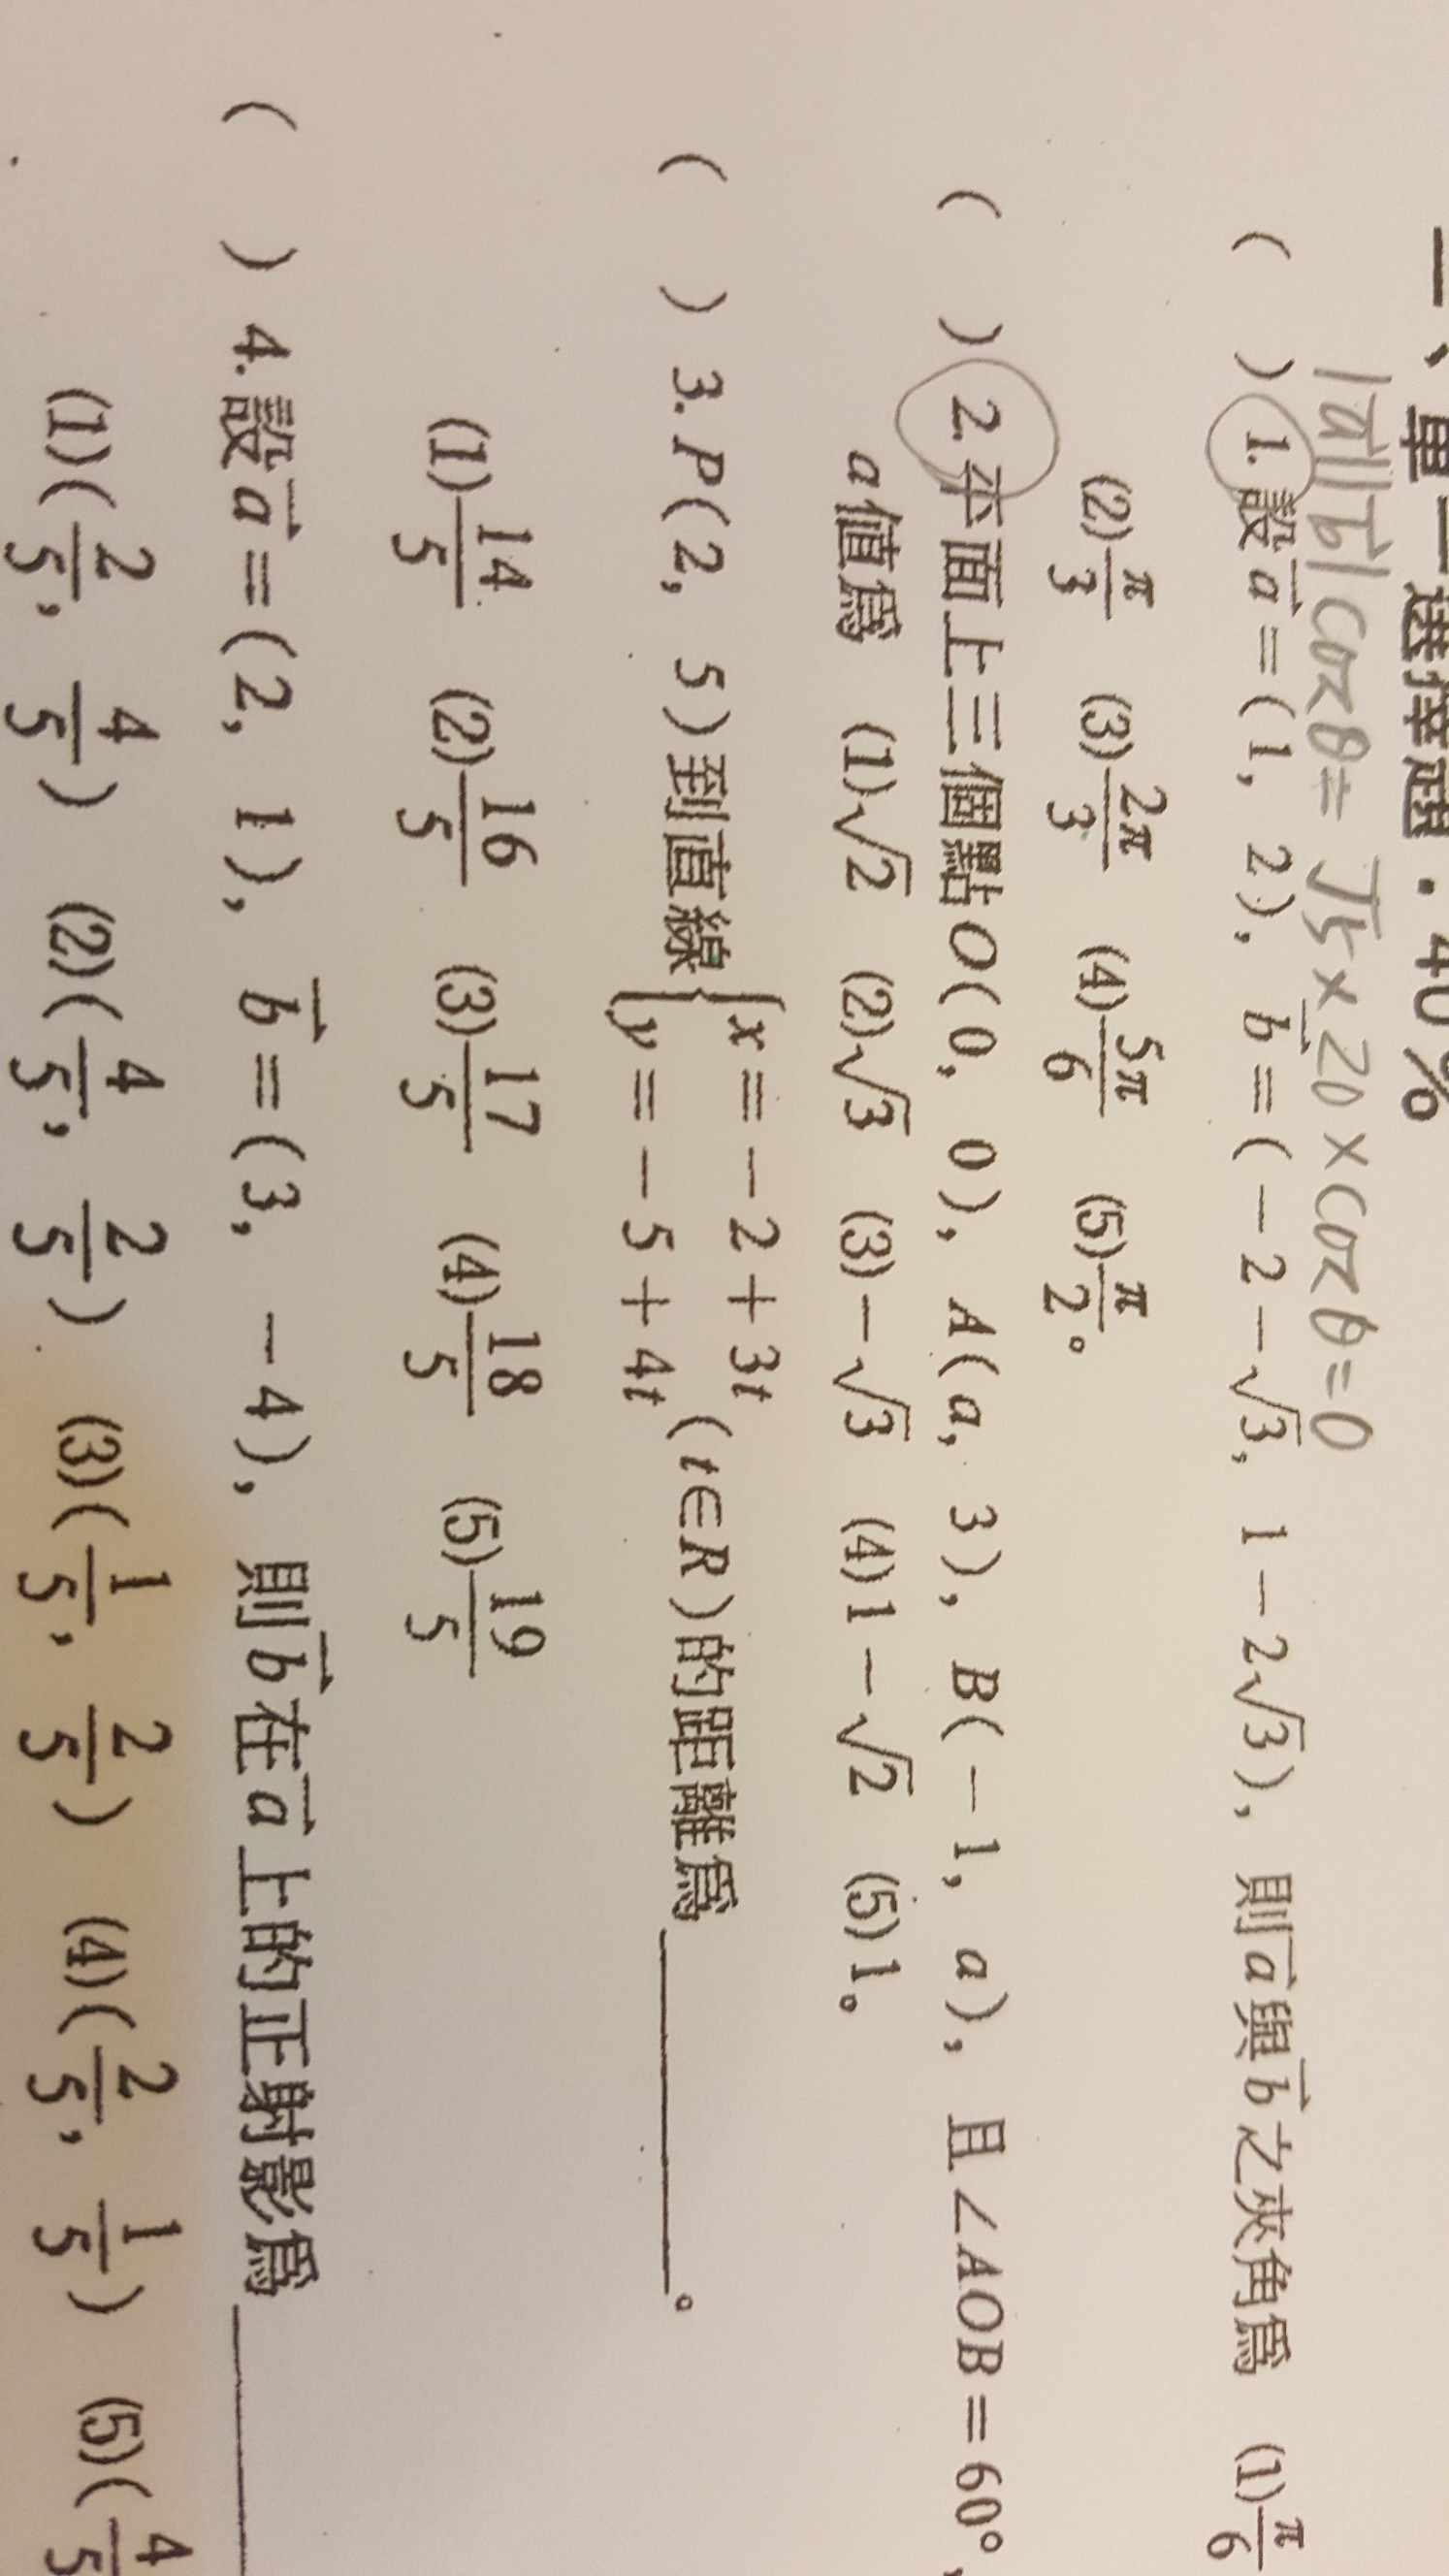 一、單一選擇題．40%
|a⃗||b⃗| cosθ = √5 × 20 × cosθ = 0
(　) 1. 設a⃗=(1, 2), b⃗=(-2-√3, 1-2√3), 則a⃗與b⃗之夾角為 (1)π/6
(2)π/3 (3)2π/3 (4)5π/6 (5)π/2。
(　) 2. 平面上三個點O(0, 0), A(a, 3), B(-1, a), 且∠AOB=60°,
a值為 (1)√2 (2)√3 (3)-√3 (4)1-√2 (5)1。
(　) 3. P(2, 5)到直線{x=-2+3t
y=-5+4t (t∈R)的距離為________。
(1)14/5 (2)16/5 (3)17/5 (4)18/5 (5)19/5
(　) 4. 設a⃗=(2, 1), b⃗=(3, -4), 則b⃗在a⃗上的正射影為________
(1)(2/5, 4/5) (2)(4/5, 2/5) (3)(1/5, 2/5) (4)(2/5, 1/5) (5)(4/5